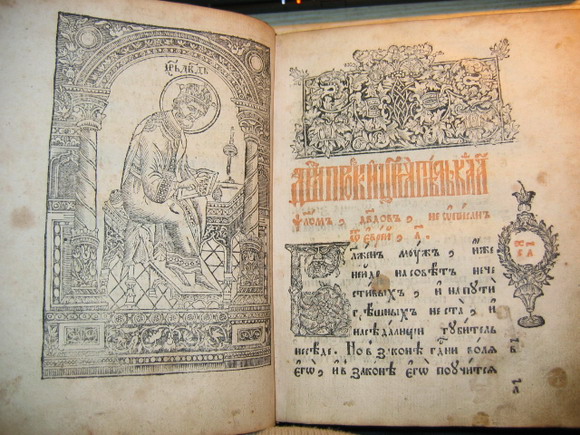 ЦР҃Ь ДВ҃ДЪ
ѱалом, дв҃довъ, не ѡписанъ
ѿ еврей, а҃.
Блж҃енъ моужъ, иже
неиде на совѣтъ нече
стивыхъ, и на пути
грѣшныхъ не ста, и
на сѣдалищи губитель
не сѣде. Но в законѣ гд҃ни воля
его, и в законѣ его поучится